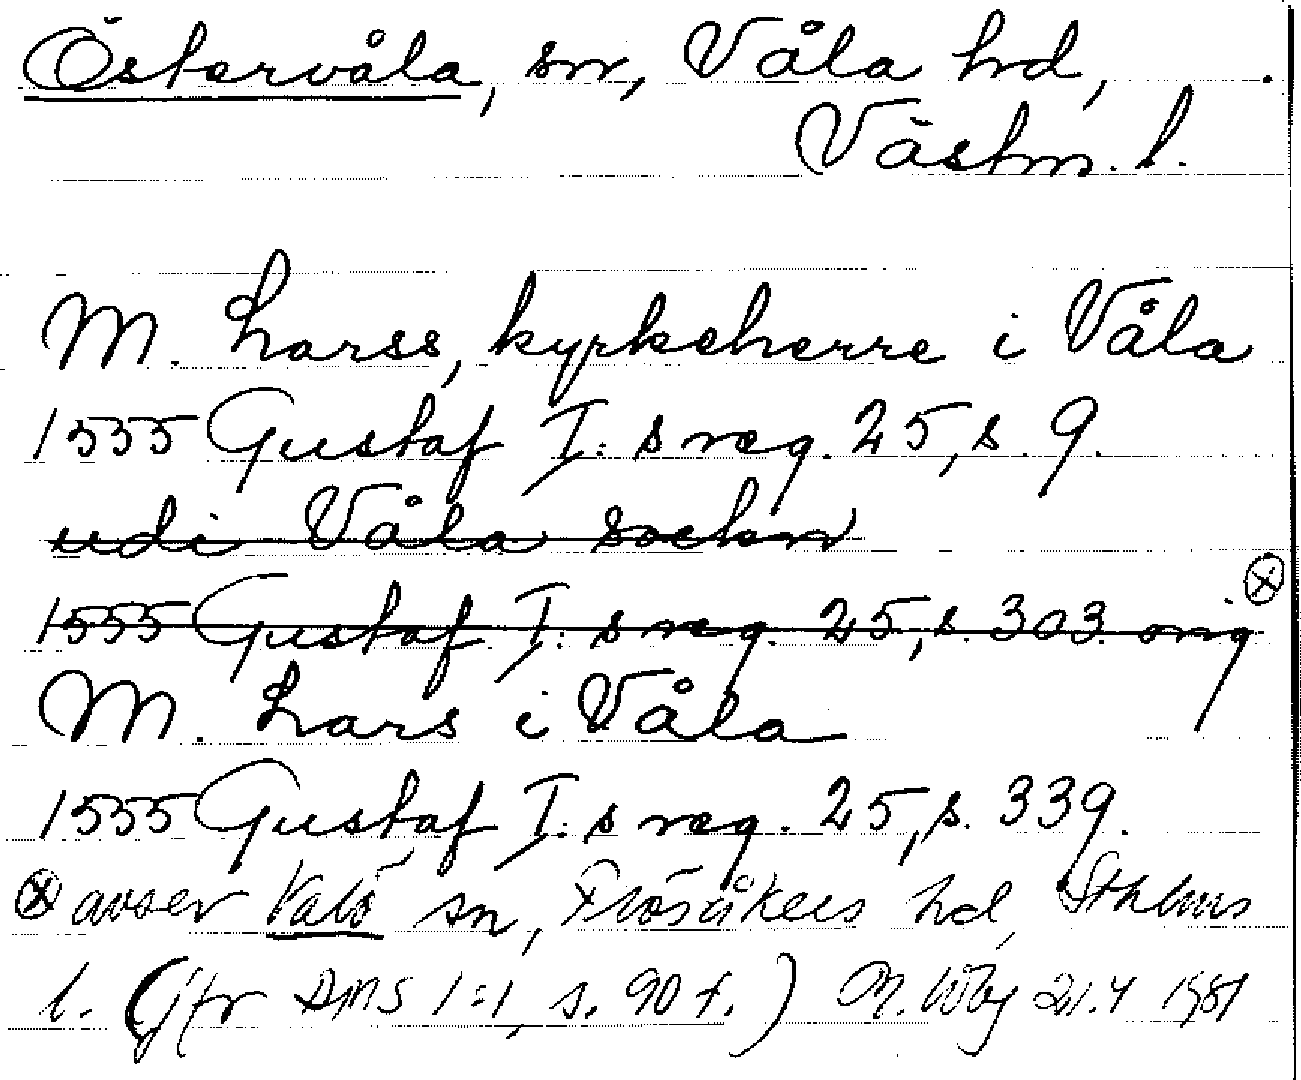 Östervåla, sn, Våla hd,
Västm. l.
M. Larss, kyrkeherre i Våla
1555 Gustaf I:s reg. 25, s. 9.
udi Våla sockn
1555 Gustaf I:s reg. 25, s. 303. orig
M. Lars i Våla
1555 Gustaf I:s reg. 25, s. 339.
ⓧ avser Valö sn, Frösåkers hd, Sthlms
l. (Jfr DMS 1:1, s. 90 f.) 21.4 1981